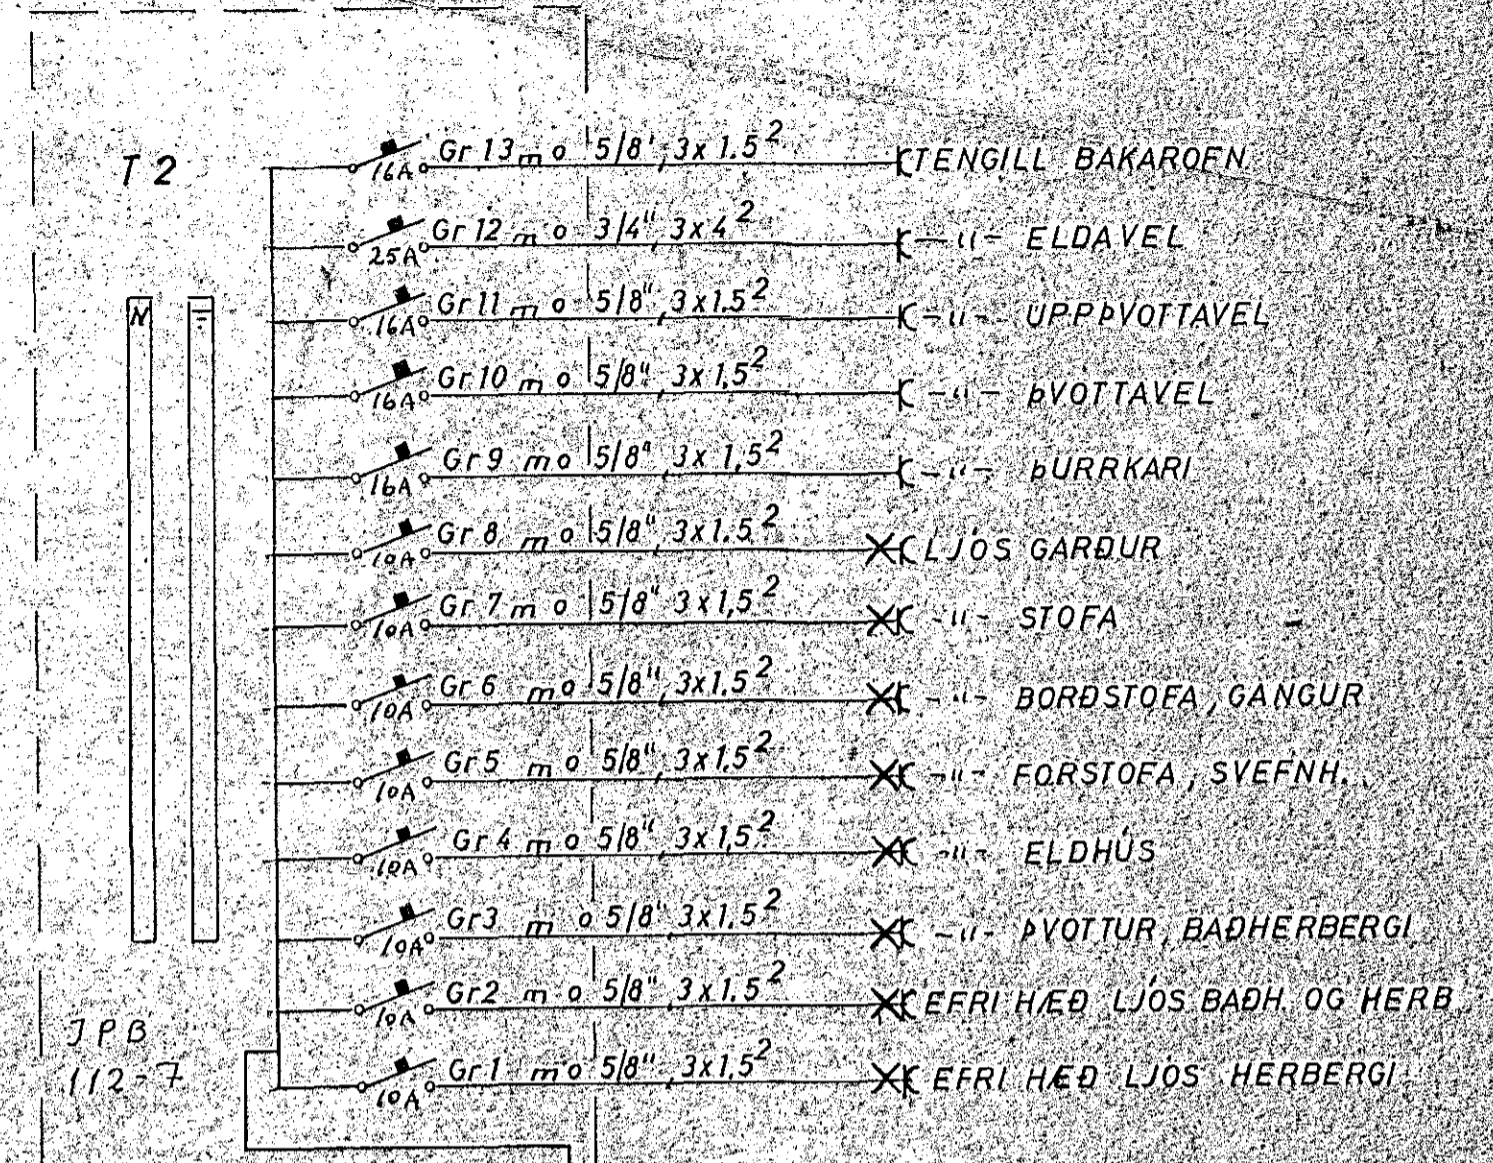 T 2
Gr 13 m o 5/8", 3x1.5² TENGILL BAKAROFN
16A
Gr 12 m o 3/4", 3x4² -"- ELDAVEL
25A
Gr 11 m o 5/8", 3x1.5² -"- UPPÞVOTTAVEL
16A
N
Gr 10 m o 5/8", 3x1,5² -"- ÞVOTTAVEL
16A
Gr 9 m o 5/8", 3x1,5² -"- ÞURRKARI
16A
Gr 8 m o 5/8", 3x1.5² LJÓS GARÐUR
10A
Gr 7 m o 5/8", 3x1,5² -"- STOFA
10A
Gr 6 m o 5/8", 3x1.5² -"- BORÐSTOFA, GANGUR
10A
Gr 5 m o 5/8", 3x1.5² -"- FORSTOFA, SVEFNH.
10A
Gr 4 m o 5/8", 3x1,5² -"- ELDHÚS
10A
Gr3 m o 5/8", 3x1.5² -"- ÞVOTTUR, BAÐHERBERGI
10A
Gr2 m o 5/8", 3x1.5² EFRI HÆÐ LJÓS BAÐH. OG HERB
10A
Gr 1 m o 5/8", 3x1,5² EFRI HÆÐ LJÓS HERBERGI
10A
JPB
112-7